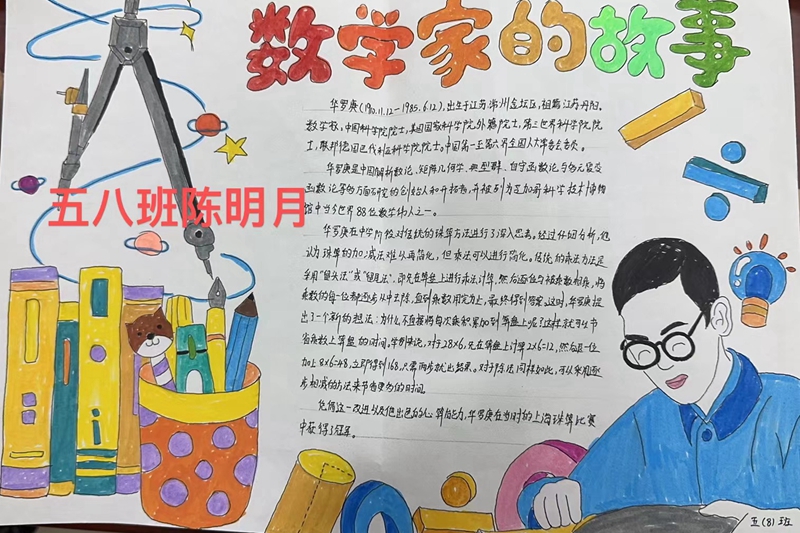 数学家的故事
五八班陈明月
华罗庚(1910.11.12—1985.6.12),出生于江苏常州金坛区,祖籍江苏丹阳。
数学家,中国科学院院士,美国国家科学院外籍院士,第三世界科学院院
士,联邦德国巴伐利亚科学院院士。中国第一至第六届全国人大常委会委员。
华罗庚是中国解析数论、矩阵几何学、典型群、自守函数论与多元复变
函数论等多方面研究的创始人和开拓者,并被列为芝加哥科学技术博物
馆中当今世界88位数学伟人之一。
华罗庚在中学阶段对传统的珠算方法进行了深入思考。经过仔细分析,他
认为珠算的加减法难以再简化,但乘法可以进行简化。传统的乘法方法是
采用“留头法”或“留尾法”,即先在算盘上进行乘法计算,然后逐位与被乘数相乘,将
乘数的每一位都逐步从中去除,直到乘数用完为止,最终得到答案。这时,华罗庚提
出了一个新的想法:为什么不直接将每次乘积累加到算盘上呢?这样就可以节
省乘数上算盘的时间。举例来说,对于28×6,先在算盘上计算2×6=12,然后退一位
加上8×6=48,立即得到168,只需两步就出结果。对于除法同样如此,可以采用逐
步相减的方法来节省更多的时间。
凭借这一改进以及他出色的心算能力,华罗庚在当时的上海珠算比赛
中获得了冠军。
五(8)班